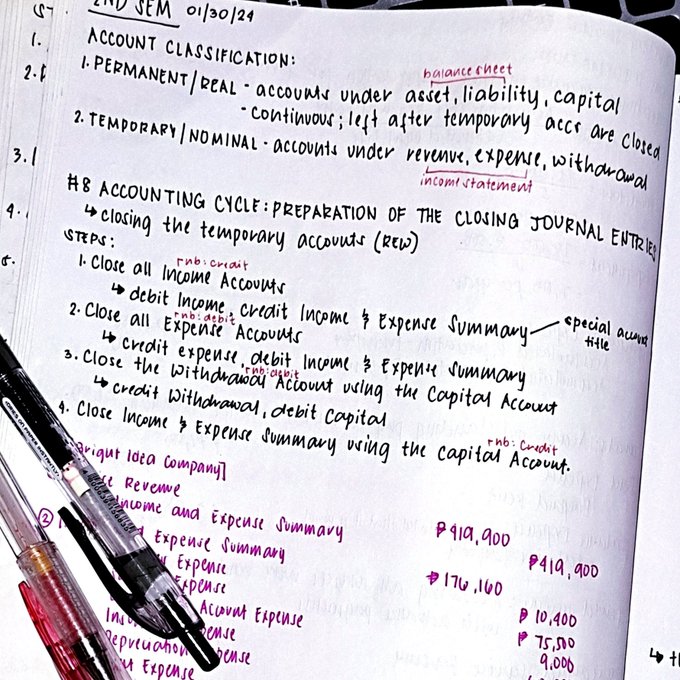 2ND SEM 01/30/24
ACCOUNT CLASSIFICATION:
balance sheet
1. PERMANENT/REAL - accounts under asset, liability, capital
- continuous; left after temporary accs are closed
2. TEMPORARY/NOMINAL - accounts under revenue, expense, withdrawal
income statement
#8 ACCOUNTING CYCLE: PREPARATION OF THE CLOSING JOURNAL ENTRIES
↳ closing the temporary accounts (REW)
STEPS:
rnb: credit
1. Close all Income Accounts
↳ debit Income, credit Income & Expense Summary — special account title
rnb: debit
2. Close all Expense Accounts
↳ credit expense, debit Income & Expense Summary
rnb: debit
3. Close the Withdrawal Account using the Capital Account
↳ credit Withdrawal, debit Capital
rnb: credit
4. Close Income & Expense Summary using the Capital Account.
Bright Idea Company]
Revenue ₱419,900
Income and Expense Summary ₱419,900
② Expense Summary ₱176,160
Expense ₱10,400
Expense ₱75,500
Account Expense 9,000
Expense
Depreciation Expense
Expense
1.
2.
3.
4.
5.